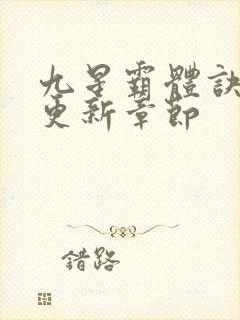 九星霸體訣
更新章節
錯路